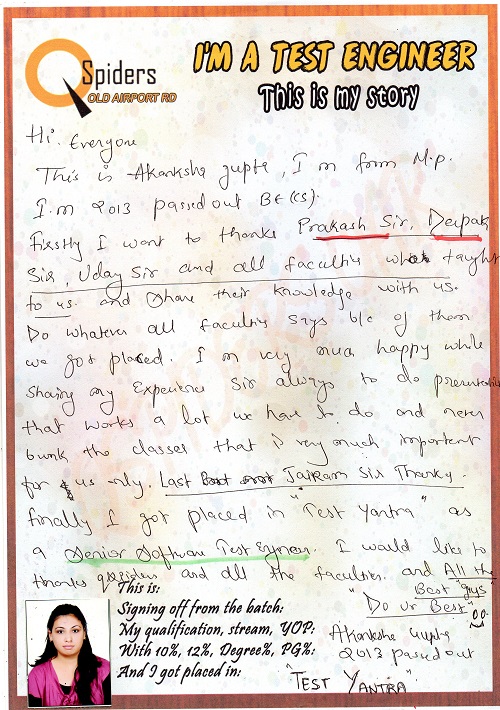 QSpiders
OLD AIRPORT RD
I'M A TEST ENGINEER
This is my story
Hi. Everyone
This is Akanksha gupta, I m form M.p.
I.m 2013 passed out BE(CS).
Firstly I want to thanks Prakash Sir, Deepak
Sir, Uday Sir and all faculties taught
to us. and share their knowledge with us.
Do whatever all faculties says b/c of them
we got placed. I m very much happy while
sharing my Experience Sir always to do
that works a lot we have to do and never
bunk the classes that is very much important
for us only. Last Jairam Sir Thanky.
finally I got placed in "Test Yantra" as
a Senior Software Test Engineer. I would like to
thanks qspiders and all the faculties. and All the
Best "guys"
"Do ur Best"
This is:
Signing off from the batch:
My qualification, stream, YOP:
With 10%, 12%, Degree%, PG%:
And I got placed in:
Akanksha Gupta
2013 passed out
"TEST YANTRA"